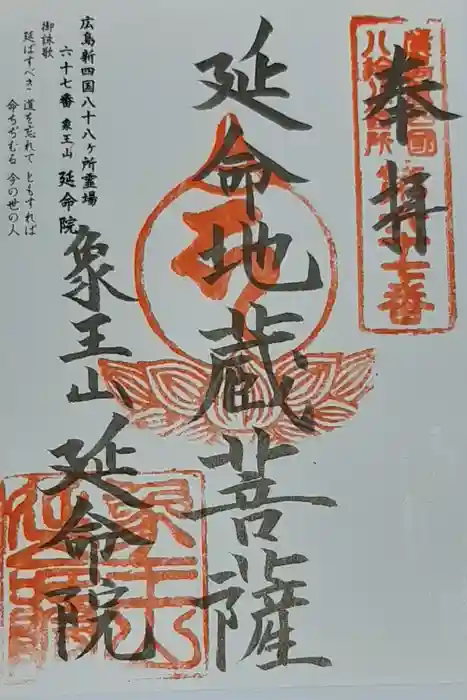 奉拝
廣島新四国
八拾八ヶ所
第六十七番
延命地蔵菩薩
象王山 延命院
広島新四国八十八ヶ所霊場
六十七番 象王山 延命院
御詠歌
延ばすべき 道を忘れて ともすれば
命ちぢむる 今の世の人